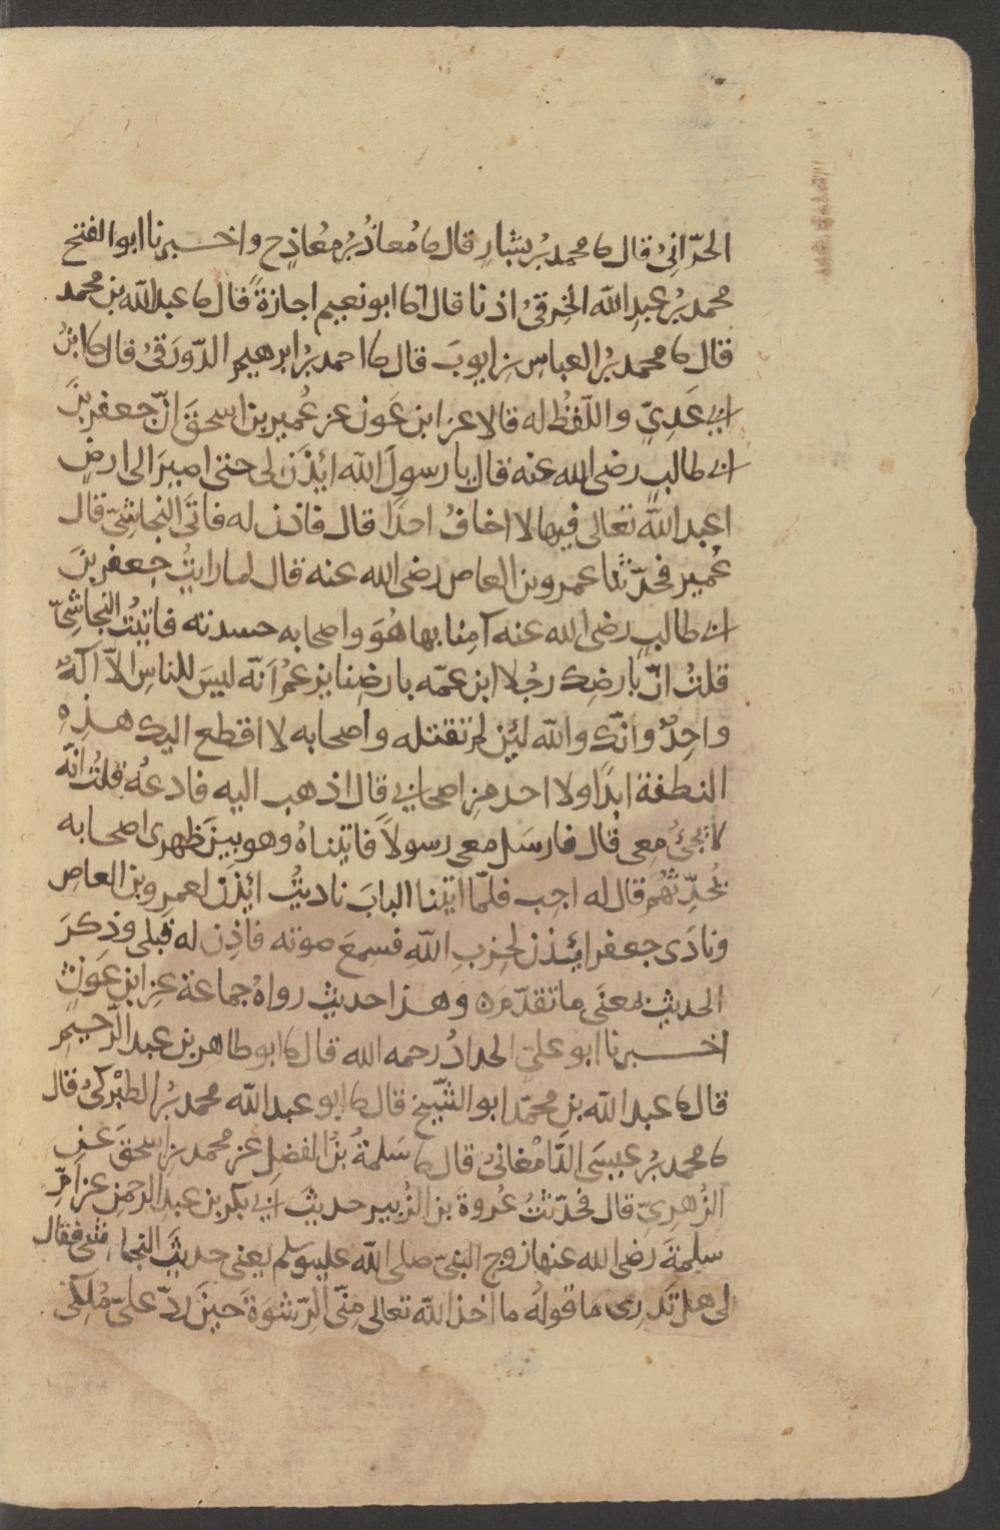 الحرّانيُ قال نا محمد بنُ بشارٍ قال نا مُعاذُ بنُ مُعاذٍ ح واخبرنا ابو الفتح
محمد بنُ عبدالله الخِرقيُ اذنا قال انا ابو نعيم اجازةً قال نا عبدالله بن محمد
قال نا محمد بنُ العباس بن ايوبَ قال نا احمد بنُ ابرهيم الدّورَقيُ قال نا ابنُ
ابي عَدِيٍّ واللّفظُ له قالا عن ابن عَونٍ عن عُمير بن اسحقَ انّ جعفر بنَ
ابي طالبٍ رضي الله عنه قال يا رسولَ الله ائذَن لي حتى اصيرَ الى ارضٍ
اعبد اللهَ تعالى فيها لا اخافُ احدًا قال فاذن له فاتَى النجاشيّ قال
عُمير فحدّثنا عمرو بن العاص رضي الله عنه قال لما رايتُ جعفر بنَ
ابي طالبٍ رضي الله عنه آمنا بها هُوَ واصحابه حسدته فاتيتُ النجاشيّ
قلتُ انّ بارضِك رجُلا ابن عمّه بارضِنا يزعمُ اَنّه ليسَ للناس الاّ الهٌ
واحِدٌ وانّك والله لئِن لم تقتله واصحابه لا اقطع اليك هذِهِ
النطفة ابدًا ولا احد من اصحابي قال اذهب اليه فادعُه قلتُ انّه
لا يجئُ معي قال فارسَل معي رسولاً فاتيناهُ وهو بينَ ظهري اصحابه
يُحدّثهُم قال له اجِب فلمّا اتينا البابَ ناديتُ ائذَنْ لعمرو بن العاص
ونادَى جعفر ائذن لحِزبِ اللهِ فسمعَ صوته فاذِن له قبلى وذكرَ
الحديث بمعنَى ما تقدّم وهذا حديث رواهُ جماعة عن ابن عَونٍ
اخبرنا ابو عليّ الحدادُ رحمه الله قال نا ابو طاهر بن عبد الرّحيم
قال نا عبدالله بن محمّد ابو الشّيخ قال نا ابو عبدالله محمد بنُ الطبْركيُ قال
نا محمد بنُ عيسَى الدّامْغانيُ قال نا سَلمةُ بنُ الفضل عن محمد بن اسحقَ عن
الزُهريّ قال فحدّثتُ عُروةَ بن الزُبير حديثَ ابي بكر بن عبد الرحمن عن امّ
سلمةَ رضي الله عنها زوج النبيّ صلى الله عليه وسلم يعني حديثَ النجاشي فقال
لي هل تَدرى مَا قولهُ ما اخذ الله تعالى مِنّي الرّشوَةَ حينَ ردّ عليّ مُلكي